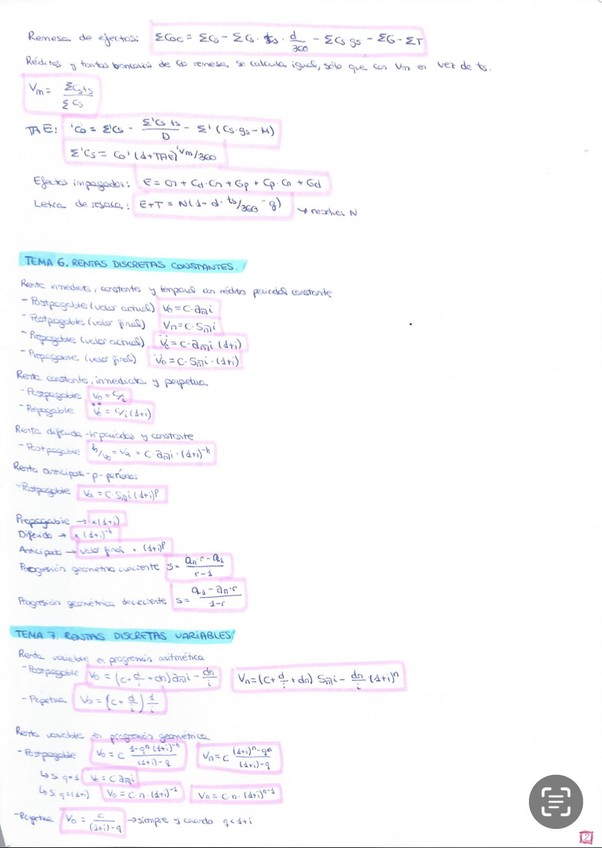 Remesa de efectos: ΣCoc = ΣCs - ΣCs · ts · d/360 - ΣCs gs - ΣG - ΣT
Réditos y tantos bancarios de la remesa, se calcula igual, sólo que con Vm en vez de ts.
Vm = ΣCs ts / ΣCs
TAE: 'Co = Σ'Cs - Σ'Cs ts / D - Σ'(Cs·gs-M)
Σ'Cs = Co'(1+TAE)^Vm/360
Efectos impagados: E = Cn + Cd·Cn + Gp + Cp·Cn + Gd
Letra de resaca: E+T = N(1-d·ts/360-g) → resolver N
TEMA 6. RENTAS DISCRETAS CONSTANTES.
Renta inmediata, constantes y temporal con rédito periodal constante
- Postpagable (valor actual) Vo = C·an̅|i
- Postpagable (valor final) Vn = C·Sn̅|i
- Prepagable (valor actual) V̈o = C·an̅|i·(1+i)
- Prepagable (valor final) V̈o = C·Sn̅|i·(1+i)
Renta constante, inmediata y perpetua
- Postpagable Vo = C/i
- Prepagable V̈o = C/i(1+i)
Renta diferida -h periodos y constante
- Postpagable h/Vo = Va = C·an̅|i·(1+i)^-h
Renta anticipada -p- periodos
- Postpagable Va = C·Sn̅|i(1+i)^p
Prepagable → x(1+i)
Diferido → x(1+i)^-h
Anticipado → valor final x (1+i)^p
Progresión geométrica creciente S = an·r-a1 / r-1
Progresión geométrica decreciente S = a1-an·r / 1-r
TEMA 7. RENTAS DISCRETAS VARIABLES
Renta variable en progresión aritmética
- Postpagable Vo = (C+d/i+dn)an̅|i - dn/i Vn = (C+d/i+dn) Sn̅|i - dn/i (1+i)^n
- Perpetua Vo = (C+d/i)1/i
Renta variable en progresión geométrica
- Postpagable Vo = C 1-q^n(1+i)^-n / (1+i)-q Vn = C (1+i)^n-q^n / (1+i)-q
↳ Si q=1 Vo = C an̅|i
↳ Si q=(1+i) Vo = C·n·(1+i)^-1 Vn = C·n·(1+i)^n-1
- Perpetua Vo = C / (1+i)-q → siempre y cuando q<1+i
2